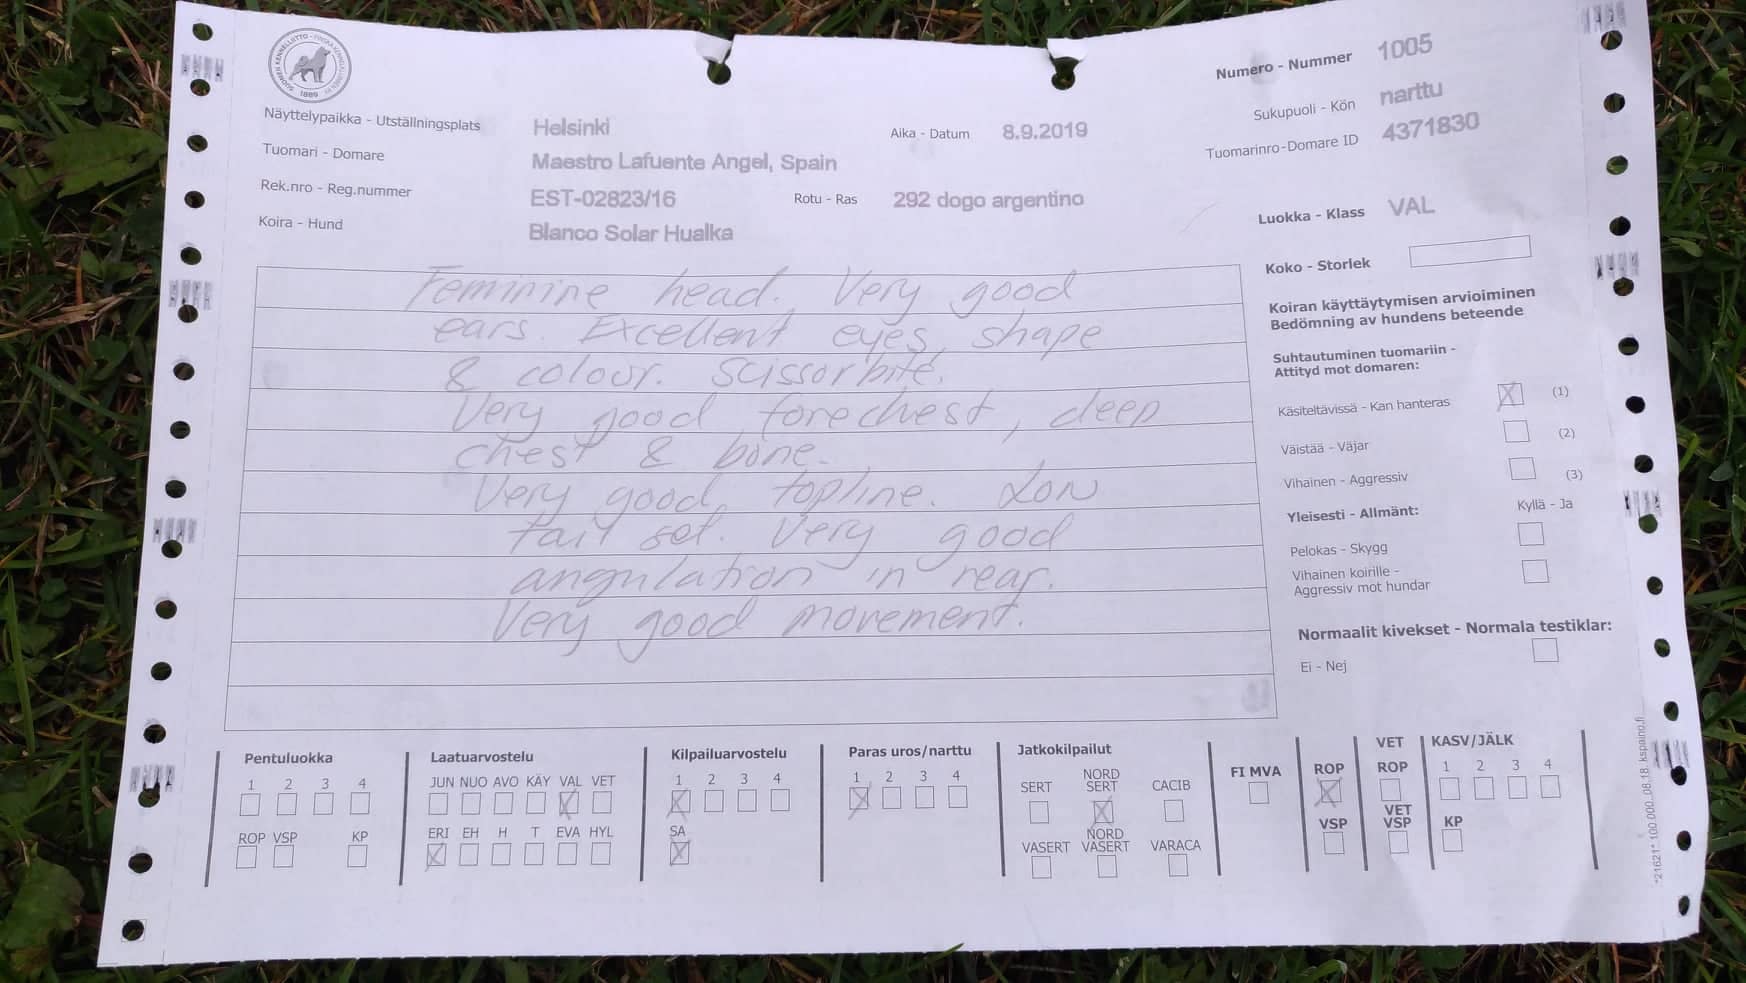 SUOMEN KENNELLIITTO - FINSKA KENNELKLUBBEN
1889
Numero - Nummer 1005
Sukupuoli - Kön narttu
Tuomarinro-Domare ID 4371830
Näyttelypaikka - Utställningsplats Helsinki Aika - Datum 8.9.2019
Tuomari - Domare Maestro Lafuente Angel, Spain
Rek.nro - Reg.nummer EST-02823/16 Rotu - Ras 292 dogo argentino
Koira - Hund Blanco Solar Hualka
Luokka - Klass VAL
Koko - Storlek
Feminine head. Very good
ears. Excellent eyes, shape
& colour. Scissorbite.
Very good forechest, deep
chest & bone.
Very good topline. Low
tail set. Very good
angulation in rear.
Very good movement.
Koiran käyttäytymisen arvioiminen
Bedömning av hundens beteende
Suhtautuminen tuomariin -
Attityd mot domaren:
Käsiteltävissä - Kan hanteras X (1)
Väistää - Väjar (2)
Vihainen - Aggressiv (3)
Yleisesti - Allmänt: Kyllä - Ja
Pelokas - Skygg
Vihainen koirille -
Aggressiv mot hundar
Normaalit kivekset - Normala testiklar:
Ei - Nej
Pentuluokka
1 2 3 4
ROP VSP KP
Laatuarvostelu
JUN NUO AVO KÄY VAL VET
X
ERI EH H T EVA HYL
X
Kilpailuarvostelu
1 2 3 4
X
SA
X
Paras uros/narttu
1 2 3 4
X
Jatkokilpailut
SERT NORD SERT CACIB
X
VASERT NORD VASERT VARACA
FI MVA
ROP
X
VSP
VET
ROP
VET
VSP
KASV/JÄLK
1 2 3 4
KP
*21621* 100.000. 06.18. kspaino.fi